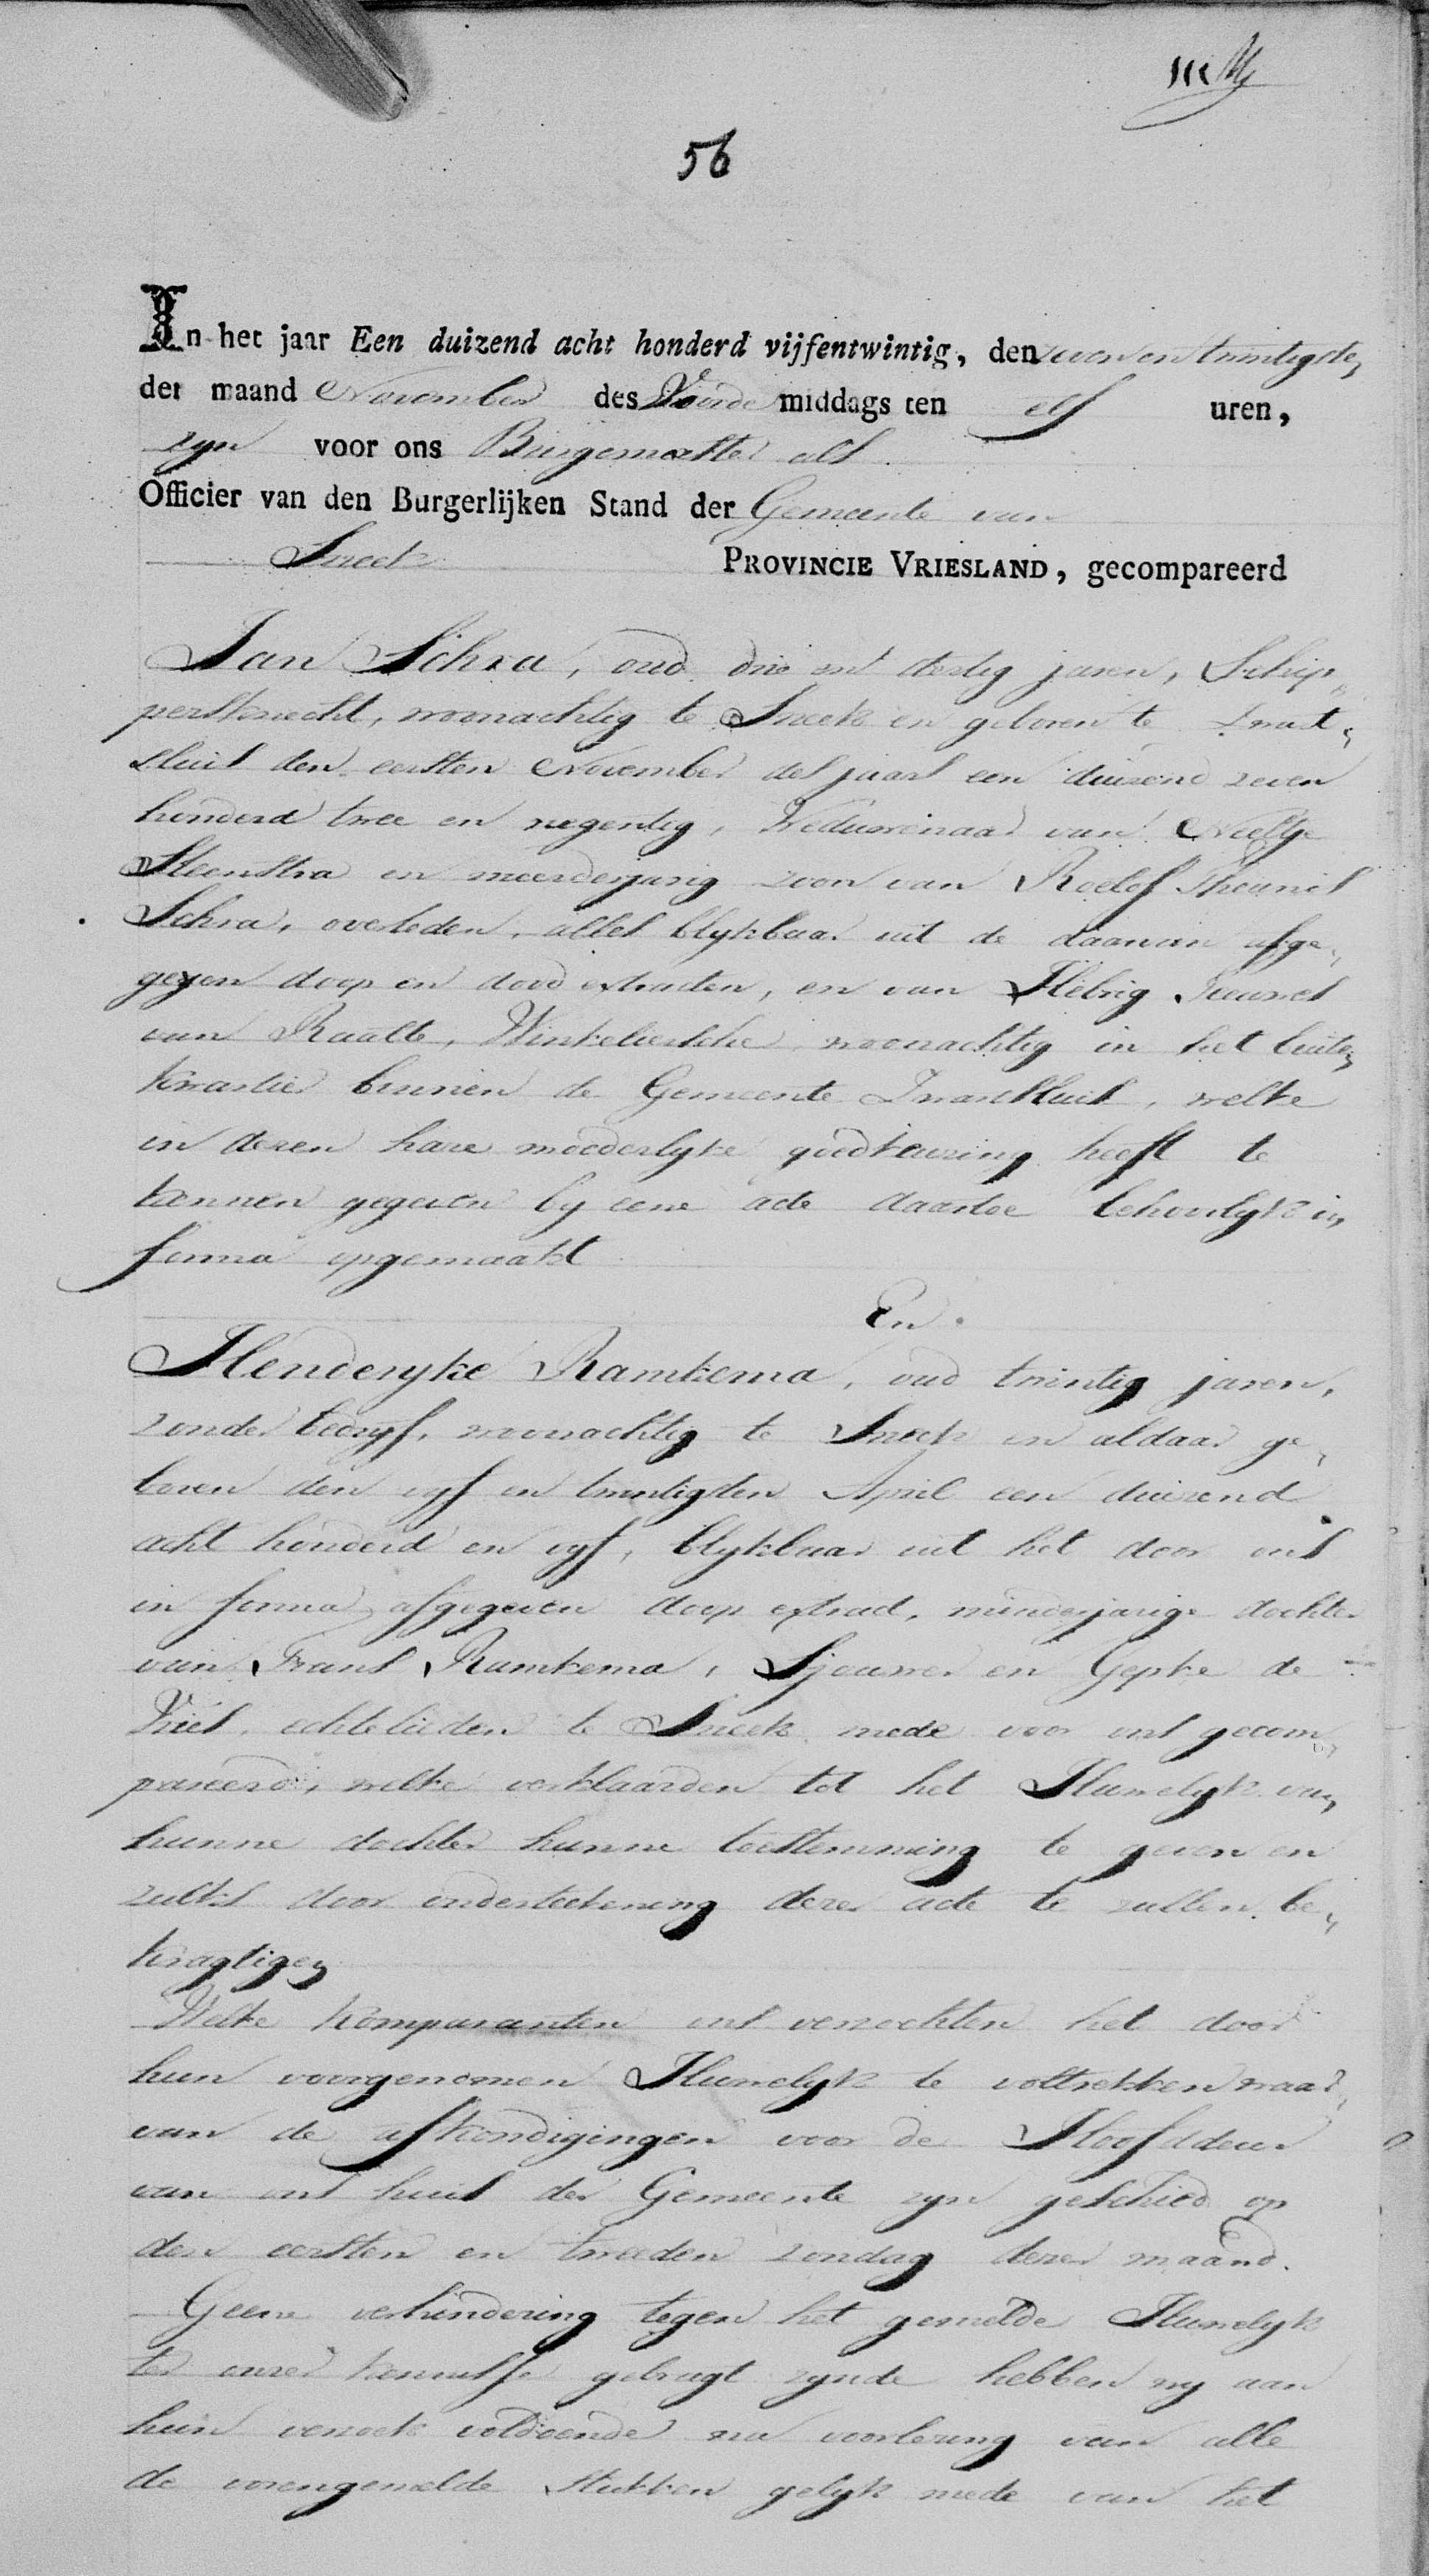 56
In het jaar Een duizend acht honderd vijfentwintig, den zeven en twintigste
der maand November des Voorde middags ten elf uren,
zyn voor ons Burgemeester als
Officier van den Burgerlijken Stand der Gemeente van
Sneek PROVINCIE VRIESLAND, gecompareerd
Jan Schra, oud drie en dertig jaren, Schip„
persknecht, woonachtig te Sneek en geboren te Zwart„
sluis den eersten November des jaars een duizend zeven
honderd twee en negentig, Weduwenaar van Neeltje
Steenstra en meerderjarig zoon van Roelof Theunis
Schra, overleden, alles blykbaar uit de daarvan afge„
geven doop en dood extracten, en van Hebrig
van Raalte, Winkeliersche woonachtig in het buite„
kwartier binnen de Gemeente Zwartsluis, welke
in dezen hare moederlyke goedkeuring heeft te
kennen gegeven by eene acte daartoe behoorlyk in
forma opgemaakt
En
Henderyke Ramkema, oud twintig jaren,
zonder bedryf, woonachtig te Sneek en aldaar ge„
boren den vyf en twintigsten April een duizend
acht honderd en vyf, blykbaar uit het door ons
in forma afgegeven doop extract, minderjarige dochter
van Frans Ramkema, Sjouwer en Gepke de
Vries, echtelieden te Sneek mede voor ons gecom„
pareerd, welke verklaarden tot het Huwelyk van
hunne dochter hunne toestemming te geven en
zulks door onderteekening dezer acte te zullen be„
kragtigen
Welke komparanten ons verzochten het door
hun voorgenomen Huwelyk te voltrekken waar„
van de afkondigingen voor de Hoofddeur
van ons huis der Gemeente zyn geschied op
den eersten en tweeden zondag dezer maand.
Geene verhindering tegen het gemelde Huwelyk
ter onzer kennisse gebragt zynde hebben wy aan
hun verzoek voldoende na voorlezing van alle
de vorengemelde stukken gelyk mede van het